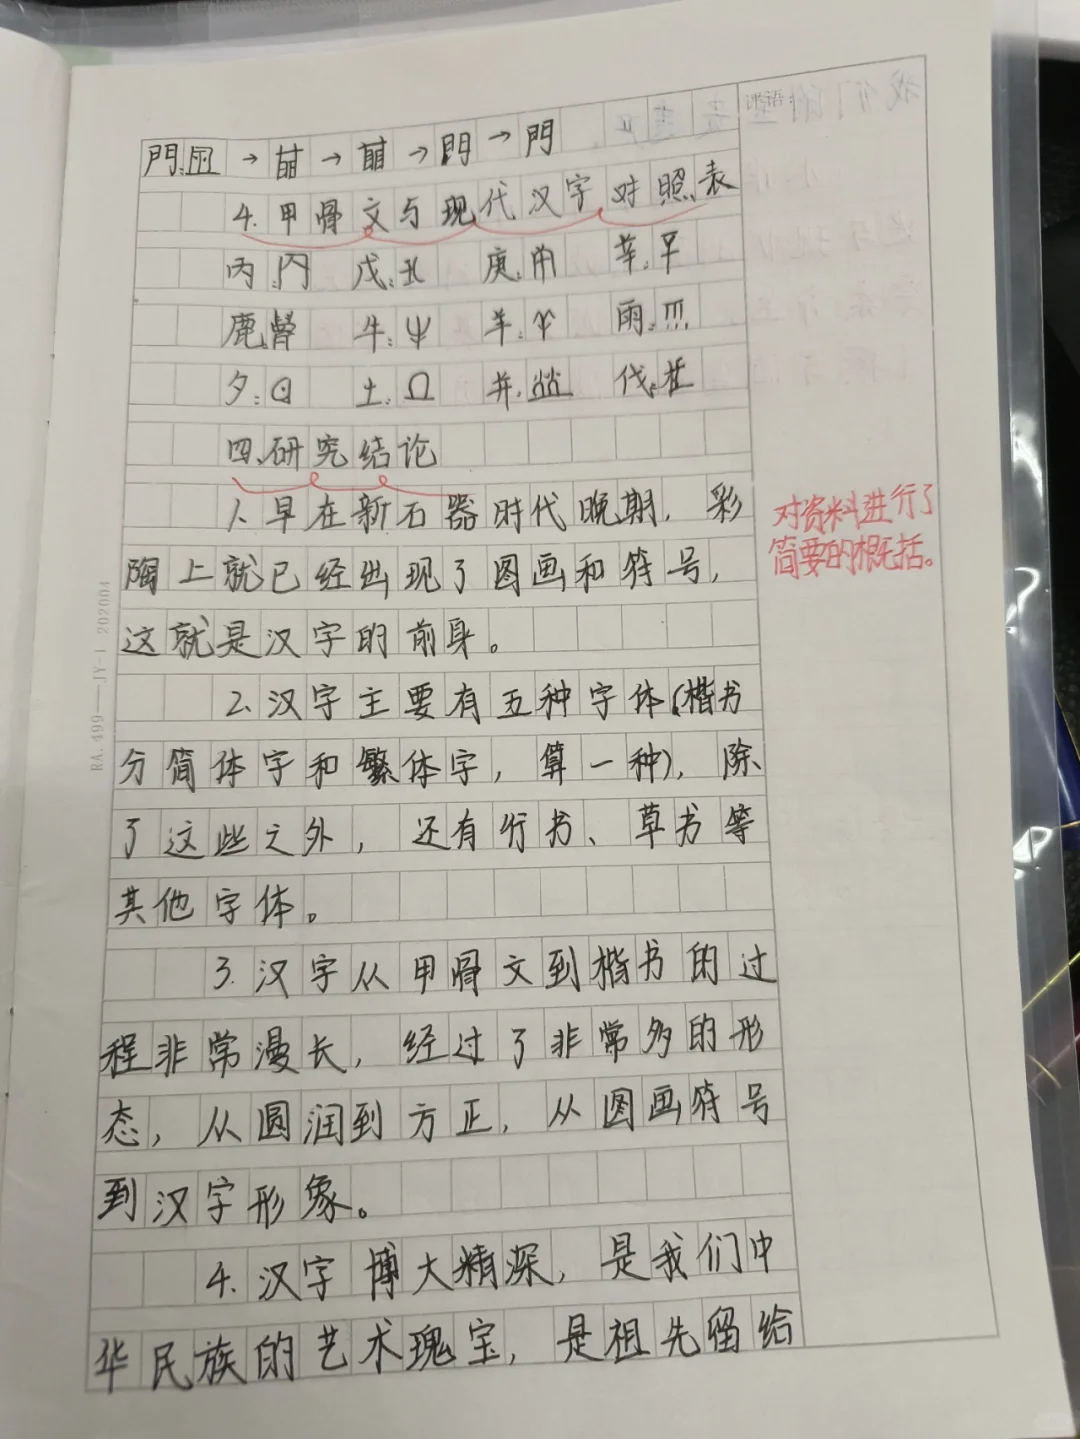 門: → → → 門 → 門
4. 甲骨文与现代汉字对照表
丙: 戊: 庚: 莘:
鹿: 牛: 羊: 雨:
夕: 土: 并: 伐:
四、研究结论
1. 早在新石器时代晚期，彩
陶上就已经出现了图画和符号，
这就是汉字的前身。
2. 汉字主要有五种字体(楷书
分简体字和繁体字，算一种)，除
了这些之外，还有行书、草书等
其他字体。
3. 汉字从甲骨文到楷书的过
程非常漫长，经过了非常多的形
态，从圆润到方正，从图画符号
到汉字形象。
4. 汉字博大精深，是我们中
华民族的艺术瑰宝，是祖先留给
评语:
对资料进行了
简要的概括。
RA.499——JY-1 202004